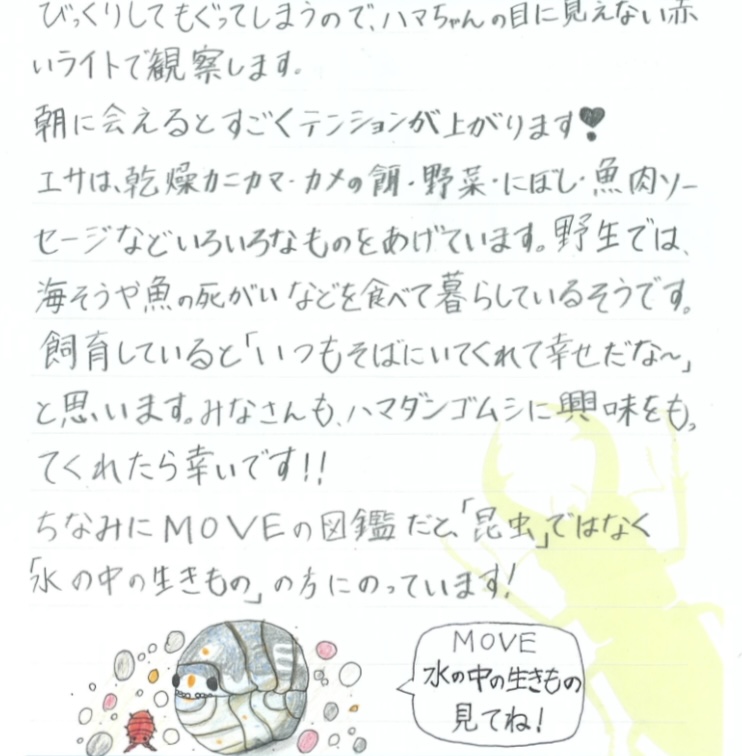 びっくりしてもぐってしまうので、ハマちゃんの目に見えない赤
いライトで観察します。
朝に会えるとすごくテンションが上がります♥
エサは、乾燥カニカマ・カメの餌・野菜・にぼし・魚肉ソー
セージなどいろいろなものをあげています。野生では、
海そうや魚の死がいなどを食べて暮らしているそうです。
飼育していると「いつもそばにいてくれて幸せだな〜」
と思います。みなさんも、ハマダンゴムシに興味をもっ
てくれたら幸いです!!
ちなみにMOVEの図鑑だと、「昆虫」ではなく
「水の中の生きもの」の方にのっています!
MOVE
水の中の生きもの
見てね!